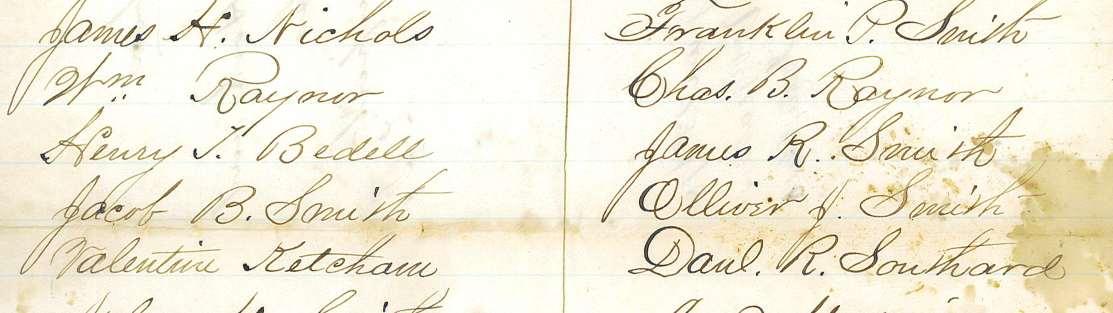 James H. Nichols
Wm Raynor
Henry T. Bedell
Jacob B. Smith
Valentine Ketcham
Franklin P. Smith
Chas. B. Raynor
James R. Smith
Olliver J. Smith
Danl. R. Southard